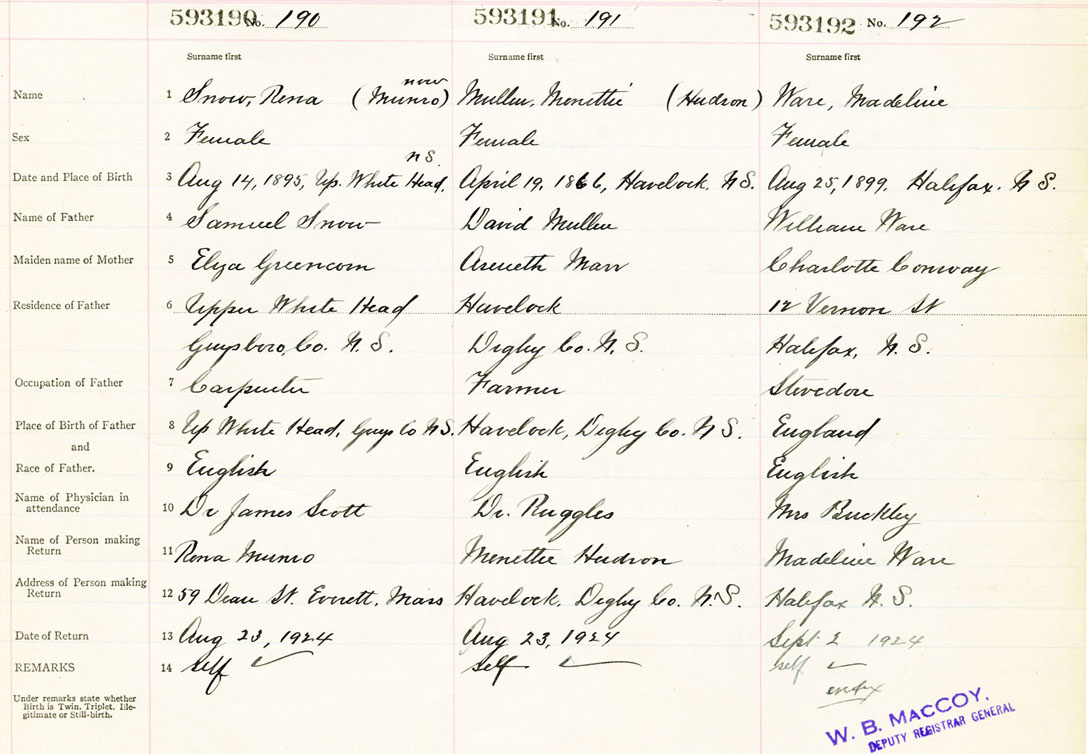 593190 No. 190 593191 No. 191 593192 No. 192
Surname first Surname first Surname first
now
Name 1 Snow, Rena (Munro) Mullen, Menettie (Hudson) Ware, Madeline
Sex 2 Female Female Female
N S.
Date and Place of Birth 3 Aug 14, 1895, Up. White Head, April 19, 1866, Havelock. N S. Aug 25, 1899, Halifax. N S.
Name of Father 4 Samuel Snow David Mullen William Ware
Maiden name of Mother 5 Eliza Greencorn Aseneth Marr Charlotte Conway
Residence of Father 6 Upper White Head Havelock 12 Vernon St
Guysboro, Co. N. S. Digby Co. N. S. Halifax, N. S.
Occupation of Father 7 Carpenter Farmer Stevedore
Place of Birth of Father 8 Up White Head, Guys Co N S. Havelock, Digby Co. N S. England
and
Race of Father. 9 English English English
Name of Physician in attendance 10 Dr James Scott Dr. Ruggles Mrs Buckley
Name of Person making Return 11 Rena Munro Menettie Hudson Madeline Ware
Address of Person making Return 12 59 Dean St. Everett, Mass Havelock, Digby Co. N. S. Halifax N. S.
Date of Return 13 Aug 23, 1924 Aug 23, 1924 Sept 2 1924
REMARKS 14 self self self
Under remarks state whether
Birth is Twin, Triplet, Ille-
gitimate or Still-birth.
W. B. MACCOY.
DEPUTY REGISTRAR GENERAL